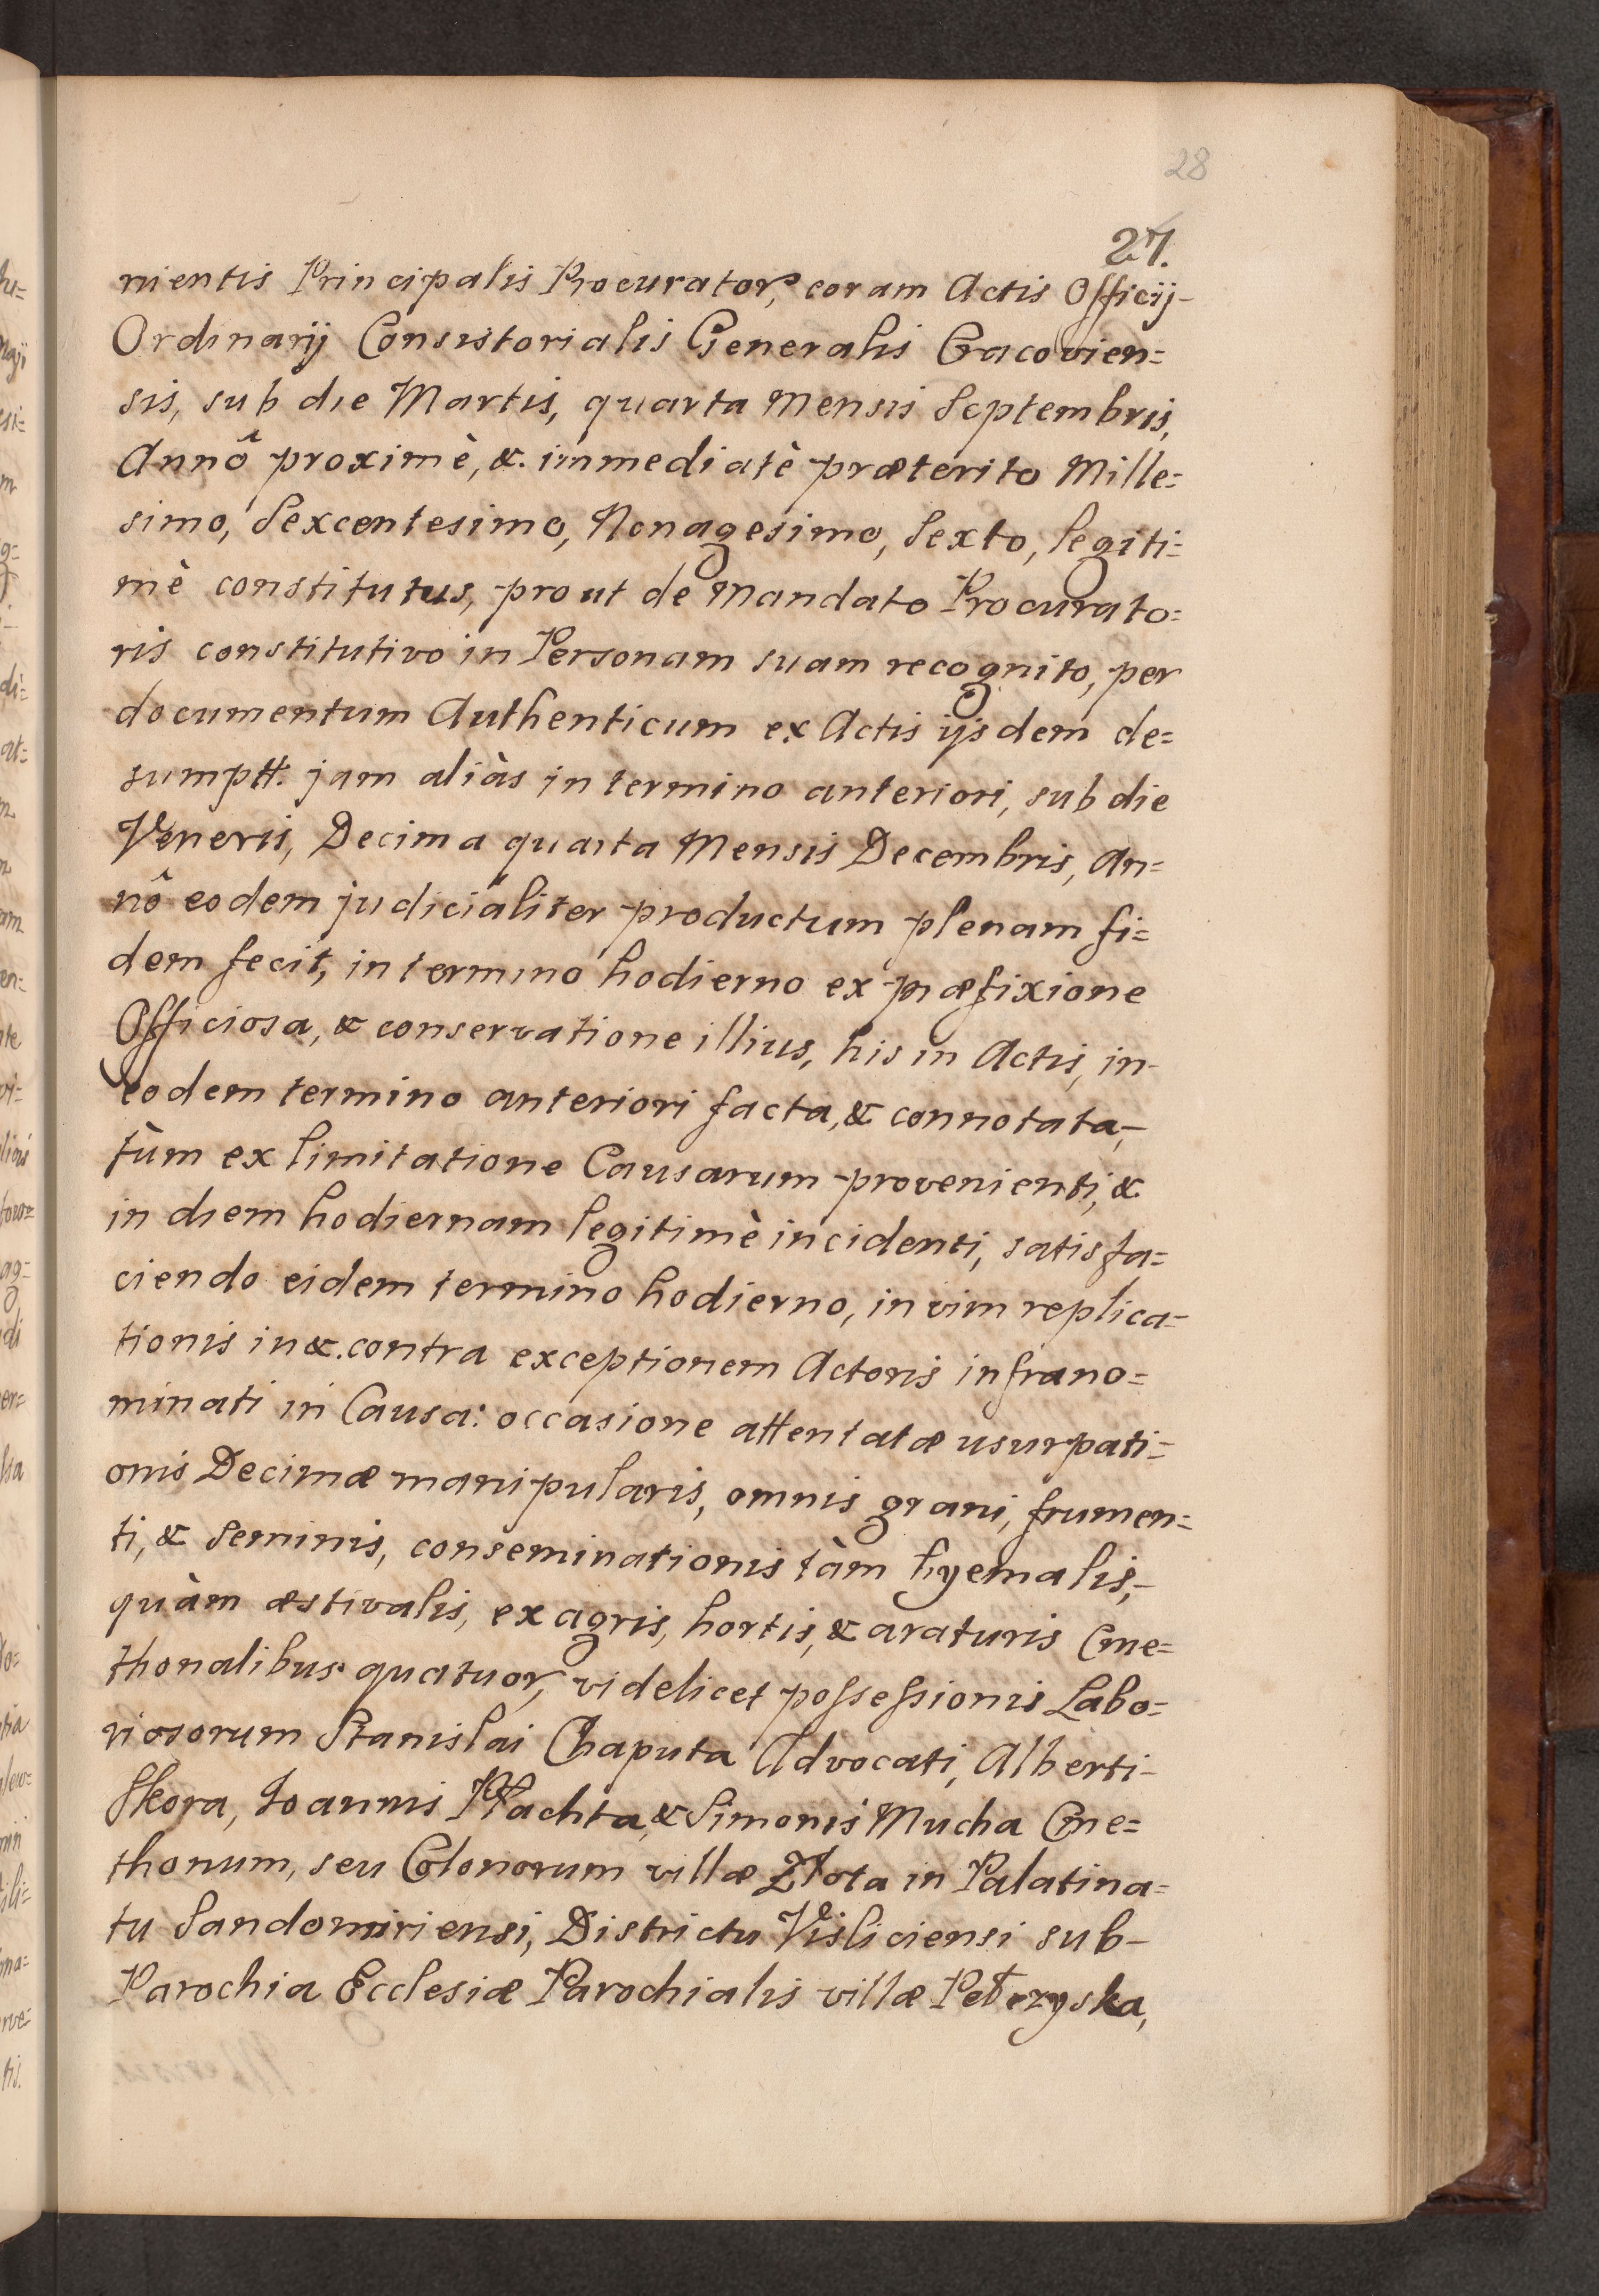 28
27.
nientis Principalis Procurator, coram Actis Officij-
Ordinarij Consistorialis Generalis Cracovien=
sis, sub die Martis, quarta Mensis Septembris,
Annô proximè, &. immediatè præterito Mille=
simo, Sexcentesimo, Nonagesimo, Sexto, legiti=
mè constitutus, prout de Mandato Procurato=
ris constitutivo in Personam suam recognito, per
documentum Authenticum ex Actis ijsdem de=
sumptt. jam aliàs in termino anteriori, sub die
Veneris, Decima quarta Mensis Decembris, An=
nô eodem judicialiter productum plenam fi=
dem fecit, in termino hodierno ex præfixione
Officiosa, & conservatione illius, his in Actis, in-
eodem termino anteriori facta, & connotata,-
tùm ex limitatione Causarum provenienti, &
in diem hodiernam legitimè incidenti, satisfa=
ciendo eidem termino hodierno, in vim replica=
tionis in &. contra exceptionem Actoris infrano=
minati in Causa: occasione attentatæ usurpati=
onis Decimæ manipularis, omnis grani, frumen=
ti, & Seminis, conseminationis tàm hyemalis,-
quàm æstivalis, ex agris, hortis, & araturis Cme=
thonalibus quatuor, videlicet possessionis Labo=
riosorum Stanislai Chaputa Advocati, Alberti-
Skora, Ioannis Płachta, & Simonis Mucha Cme=
thonum, seu Colonorum villæ Złota in Palatina=
tu Sandomiriensi, Districtu Visliciensi sub-
Parochia Ecclesiæ Parochialis villæ Pełczyska,